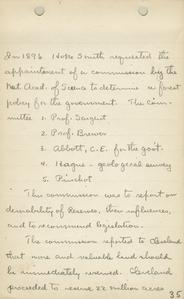 In 1896 Hoke Smith requested the
appointment of a commission by the
Nat. Acad. of Science to determine a forest
policy for the government. The Com-
mittee 1. Prof. Sargent
2. Prof. Brewer
3. Abbott, C.E. for the govt.
4. Hague - geological survey
5. Pinchot
This commission was to report on
desirability of Reserves, their influences,
and to recommend legislation.
The commission reported to Cleveland
that more and valuable land should
be immediately reserved. Cleveland
proceeded to reserve 22 million acres
35